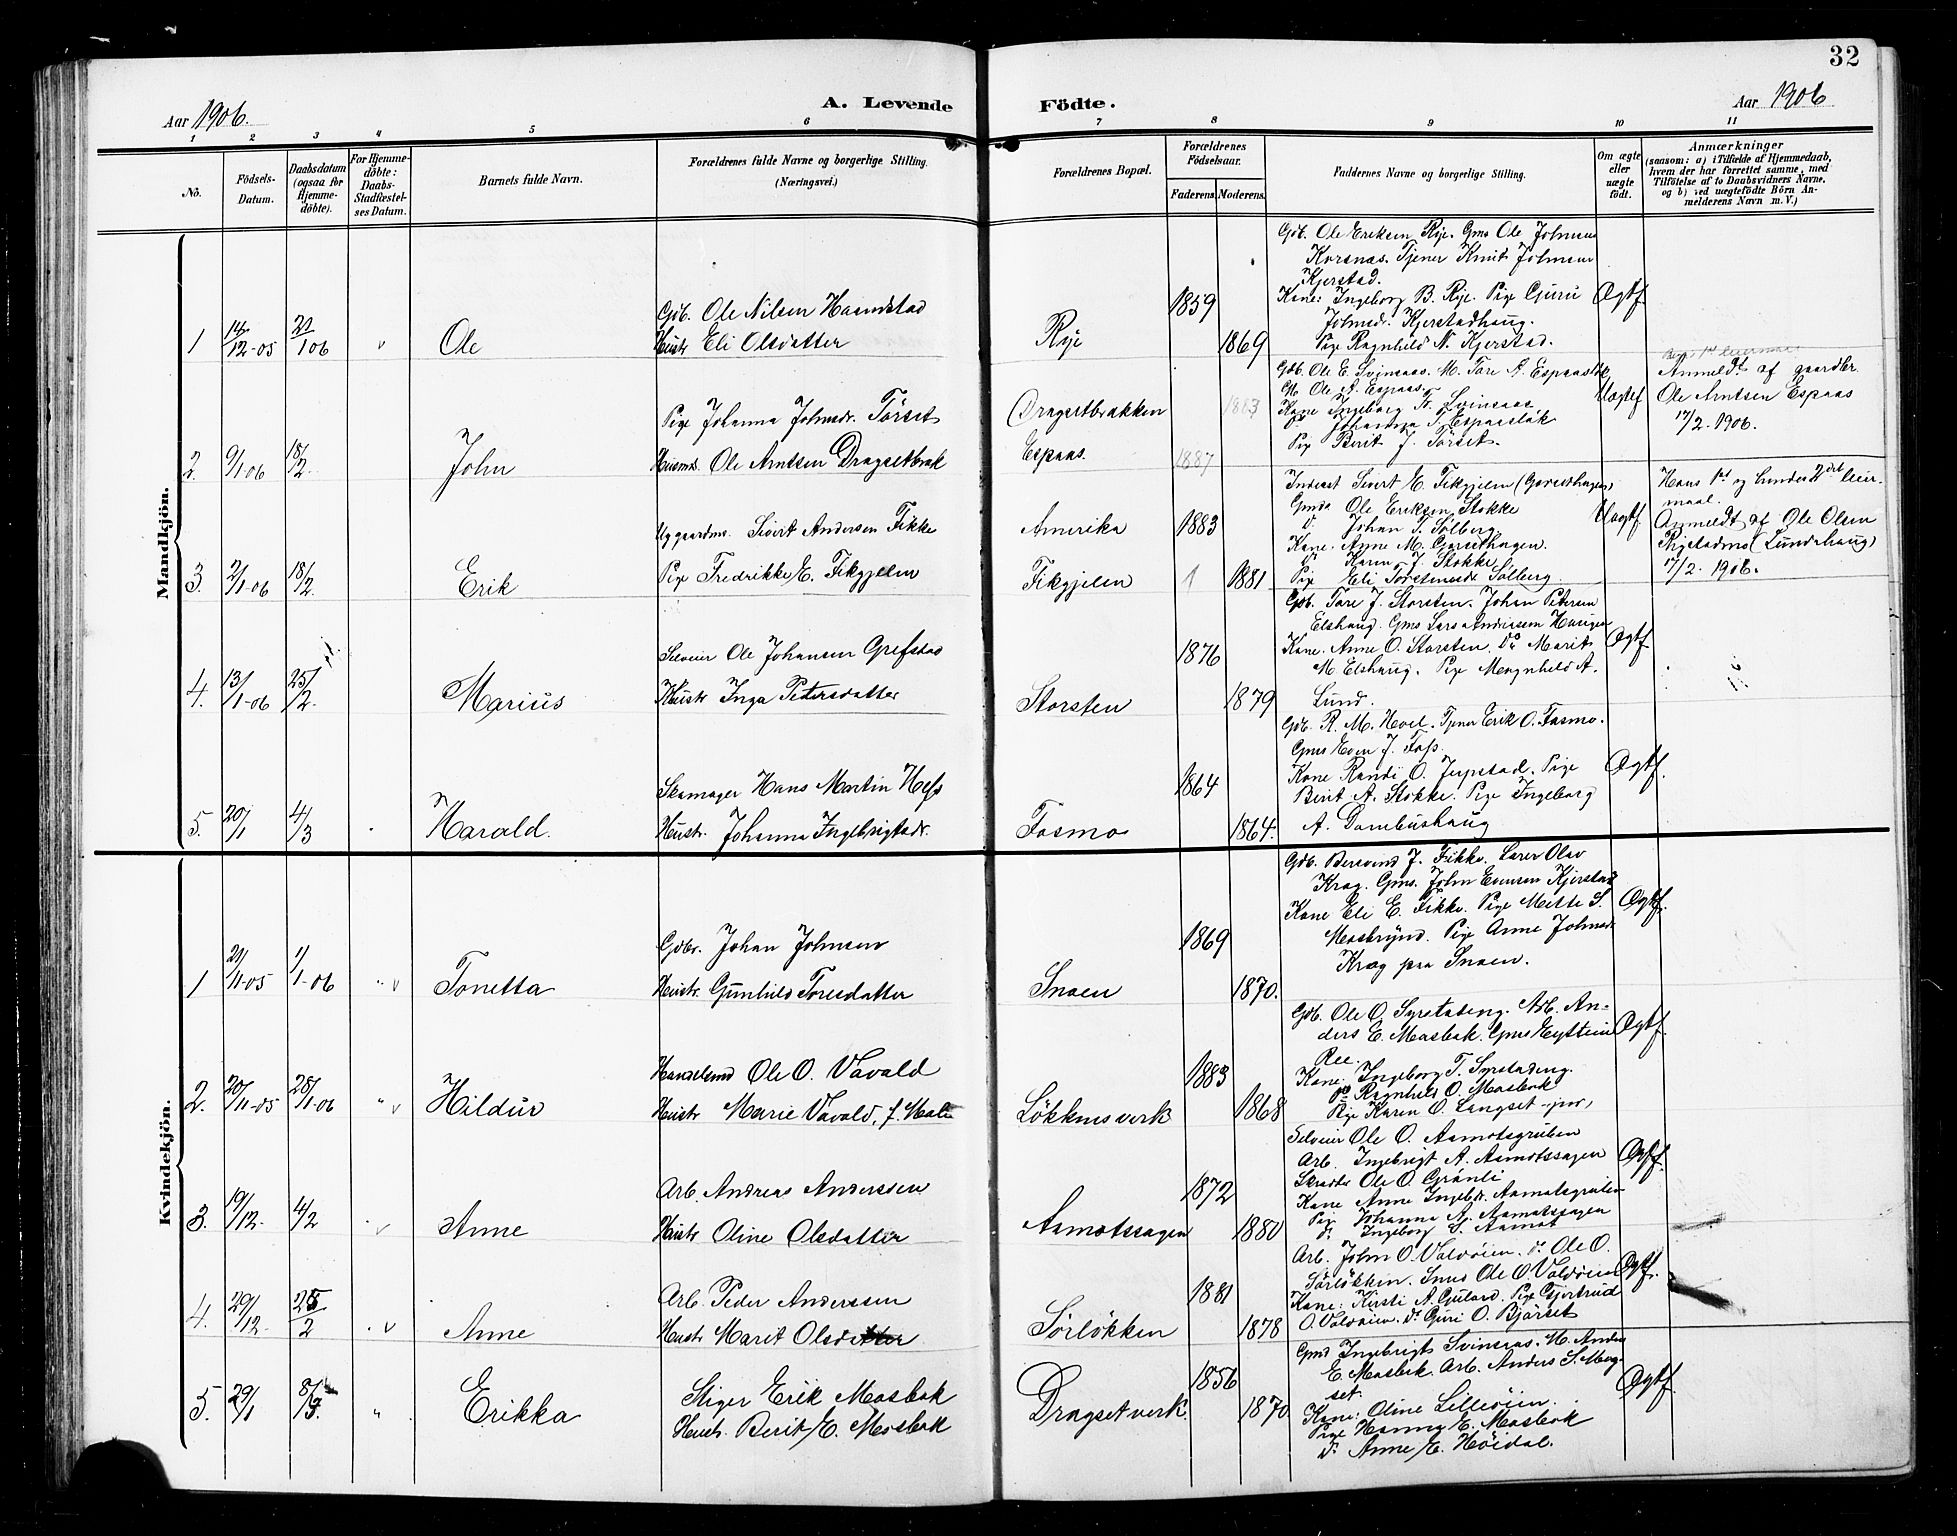 32
Aar 1906.
A. Levende
Födte.
Aar 1906
1 2 3 4 5 6 7 8 9 10 11
No.
Födsels-
Datum.
Daabsdatum
(ogsaa for
Hjemme-
döbte).
For Hjemme-
döbte:
Daabs-
Stadfæstel-
ses Datum.
Barnets fulde Navn.
Forældrenes fulde Navne og borgerlige Stilling.
(Næringsvei.)
Forældrenes Bopæl.
Forældrenes
Födselsaar.
Faderens. Moderens.
Faddernes Navne og borgerlige Stilling.
Om ægte
eller
uægte
født.
Anmærkninger
(saasom: a) i Tilfælde af Hjemmedaab,
hvem der har forrettet samme, med
Tilföielse af to Daabsvidners Navne,
og b) ved uegtefödte Börn An-
melderens Navn m. V.)
Mandkjön.
1
14/12-05
21/1 06
Ole
Gdb. Ole Nilsen Haamstad
Hustr Eli Olsdatter
Rye
1859
1869
Gdb. Ole Eriksen Rye. Gms Ole Johnsen
Korsnæs. Tjener Knut Johnsen
Kjerstad.
Kone: Ingeborg B. Rye. Pige Guru
Johnsdr. Kjerstadhaug.
Pige Ragnhild N. Kjerstad.
Ægtf
2.
9/1-06
18/2.
John
Pige Johanna Johnsdr. Törset
Husmd. Ole Arntsen Dragsetbræk
Dragsetbrækken
Espaas.
1887
1883
Gdb. Ole E. Svinsaas. M. Tore A. Espaas
M. Ole A. Espaas.
Kone Ingeborg Svinsaas
Johanna T. Espaaslök
Pige Berit J. Törset.
Uægtef
Anmeldt af gaardbr.
Ole Arntsen Espaas
17/2-1906.
3
2/1-06
18/2.
Erik
Uggaardms. Sivert Andersen Fikke
Pige Fredrikke E. Fikgjelen
Amerika
Fikgjelen
1883
1881
Inderst Sivert E. Fikgjelen (Garsethagen)
Gmds Ole Eriksen Stokke
D. Johan T. Sølberg
Kone. Anne M. Garsethagen.
D. Karen J. Stokke
Pige Eli Torstensdr Sølberg.
Uægtf
Hans 1st og hendes 2det leier-
maal.
Anmeldt af Ole Olsen
Rigstadmo (Lundshaug)
17/2-1906.
4.
13/1-06
25/2.
Marius
Selveier Ole Johansen Grefstad
Hustr Inga Petersdatter
Storsten
1876
1879
Gdb. Tore J. Storsten. Johan Petersen
Elshaug. Gms Lars Andreasen Haugen
Kone. Anne O. Storsten. Do Marit
M. Elshaug. Pige Magnhild A.
Lund.
Ægtf
5.
20/1
4/3
Harald.
Skomager Hans Martin Hefs
Hustr. Johanna Ingebrigtsdr.
Fosmo
1864
1864.
Gdb. R. M. Hoel. Tjener Erik O. Fosmo.
Gms Even J. Foss.
Kone Randi O. Jerpstad. Pige
Berit A. Stokke. Pige Ingeborg
A. Dombushaug
Ægtf.
Kvindekjön.
1
21/11-05
1/1-06
Tonetta
Gdbr. Johan Johnsen
Hustr Gunhild Toresdatter
Snoen
1869
1870.
Gdb. Bersvend J. Fikke. Lærer Olav
Krog. Gms. John Evensen Kjerstad
Kone Eli E. Fikke. Pige Mette S.
Mosbrynd. Pige Anne Johnsdr
Krog pra Snoen.
Ægtf.
2.
20/11-05
28/1-06
Hildur
Handelsmd Ole O. Vavald
Hustr Marie Vavald, f. Malm
Lökkensverk
1883
1868
Gdb. Ole O. Syrstadeng. Arb. An-
ders E. Mosbak. Gms Eystein
Ree.
Kone: Ingeborg T. Syrstadeng.
Do Ragnhild O. Mosbak
Pige Karen O. Langset jnr,
Ægtf.
3.
19/12.
4/2
Anne
Arb. Andreas Anderssen
Hustr Oline Olsdatter
Aamotssagen
1872
1880
Selveier Ole O. Aamotsgruben
Arb. Ingebrigt A. Aamotssagen
Skrædder Ole O. Grönli
Kone Anne Ingebr. Aamotsgruben
Pige Johanna A. Aamotssagen
D. Ingeborg S. Aamot
Ægtf.
4.
29/12.
25/2
Anne
Arb. Peder Anderssen
Hustr Marit Olsdatter
Sörlökken
1881
1878
Arb. John O. Valdöien. D. Ole O.
Sörlökken. Snus Ole O. Valdöien
Kone: Kirsti A. Gulard. Pige Gjertrud
O. Valdöien. Do Guri O. Björset
Ægtf.
5.
29/1
8/3.
Erikka
Stiger Erik Mosbak
Hustr. Berit E. Mosbak
Dragsetverk.
1856
1870
Gmd Ingebrigt Svinsaas. M. Anders
E. Mosbak. Arb. Anders S. Mog-
set.
Kone: Oline Lilleöien.
Pige Hanna E. Mosbak
D. Anne E. Höidal.
Ægtf.